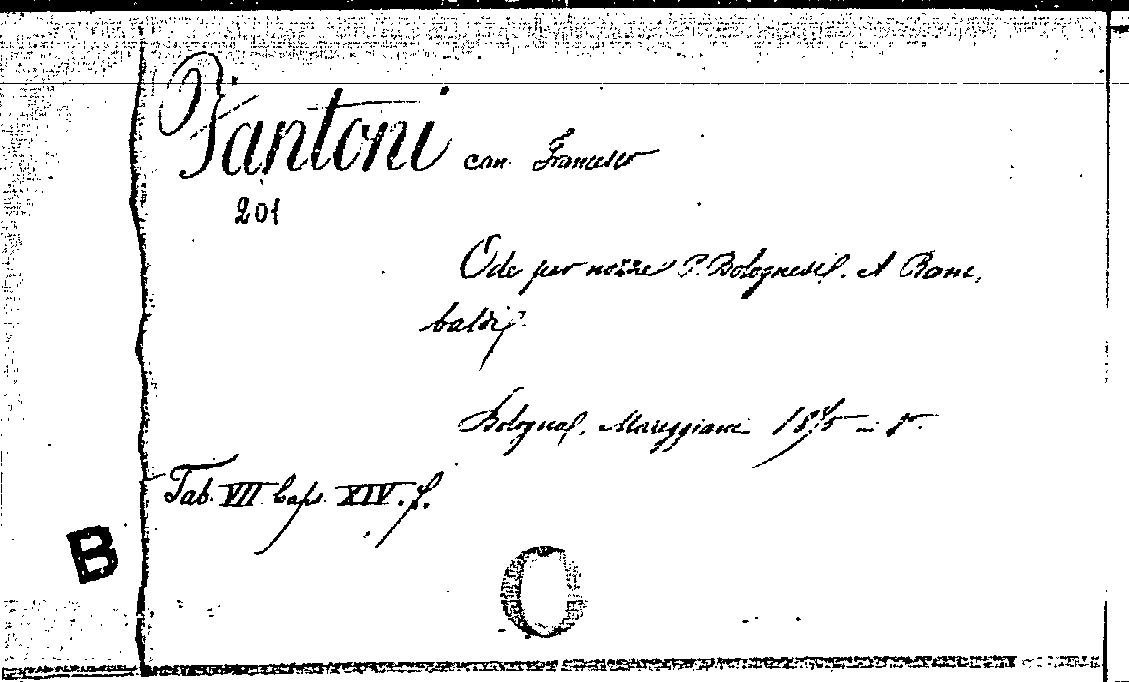 Fantoni can. Francesco
201
Ode per nozze P. Bolognesi. A Ram,
baldi.
Bologna. Mareggiani 1875 – 8°.
Tab. VII Caps. XIV. f.
B
O